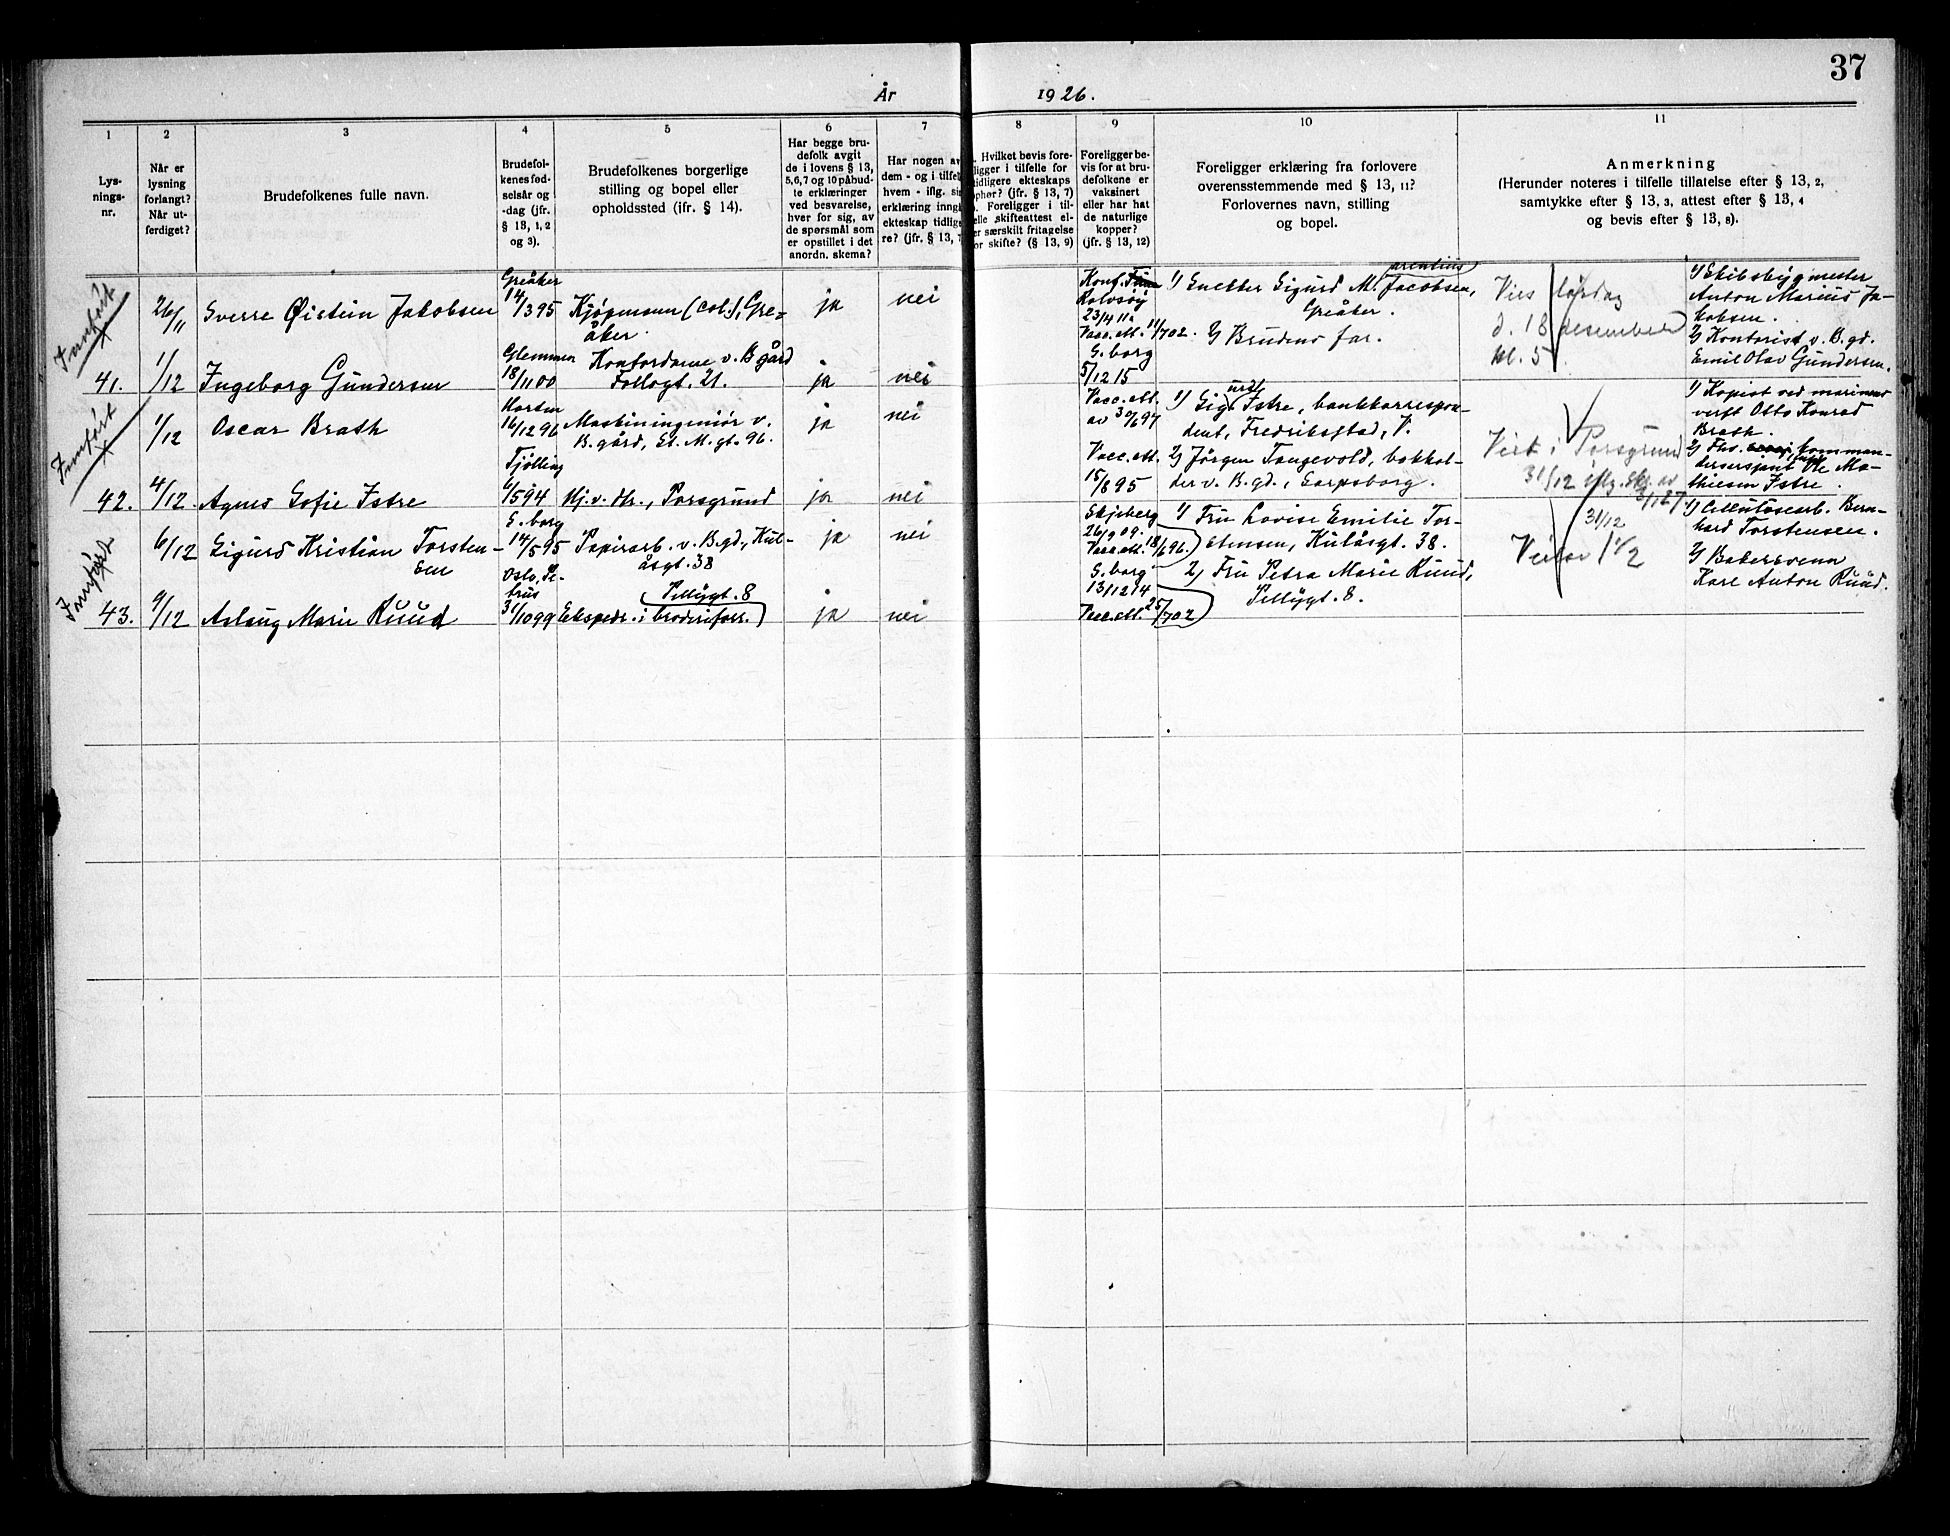 37
År 1926.
1 2 3 4 5 6 7 8 9 10 11
Lys-
nings-
nr.
Når er
lysning
forlangt?
Når ut-
ferdiget?
Brudefolkenes fulle navn.
Brudefol-
kenes fød-
selsår og
-dag (jfr.
§ 13, 1, 2
og 3).
Brudefolkenes borgerlige
stilling og bopel eller
opholdssted (ifr. § 14).
Har begge bru-
defolk avgit
de i lovens § 13,
5,6,7 og 10 påbud-
te erklæringer
ved besvarelse,
hver for sig, av
de spørsmål som
er opstillet i det
anordn. skema?
Har nogen av
dem - og i tilfel
hvem - iflg. si
erklæring inngå
ekteskap tidlige
re? (jfr. § 13, 7
Hvilket bevis fore-
ligger i tilfelle for
tidligere ekteskaps
ophør? (jfr. § 13, 7)
Foreligger i til-
felle skifteattest el-
er særskilt fritagelse
or skifte? (§ 13, 9)
Foreligger be-
vis for at bru-
defolkene er
vaksinert
eller har hat
de naturlige
kopper?
(jfr. § 13, 12)
Foreligger erklæring fra forlovere
overensstemmende med § 13, 11?
Forlovernes navn, stilling
og bopel.
Anmerkning
(Herunder noteres i tilfelle tillatelse efter § 13, 2,
samtykke efter § 13, 3, attest efter § 13, 4
og bevis efter § 13, 8).
Innført
41.
26/11
Sverre Øistein Jakobsen
Greåker
14/3 95
Kjøpmann (col.), Gre-
åker
ja
nei
Konf.
Rolvsøy
23/4 11.
Vacc.att. 11/7 02.
1) Snekker Sigurd M. Jacobsen,
arentius
Greåker.
2) Brudens far.
Vies lørdag
d. 18 desember
kl. 5
1) Skibsbygmester
Anton Marius Ja-
kobsen.
2) Kontorist v. B.gd.
Emil Olav Gundersen.
1/12
Ingeborg Gundersen
Glemmen
18/11 00
Kontordame v. B gård
Tollogt. 21.
ja
nei
S. borg
5/12 15
Innført
42.
1/12
Oscar Brath
Horten
16/12 96
Maskiningeniør v.
B. gård, St. M. gt. 96.
ja
nei
Vacc.att.
av 30/6 97
1) Sigurd Istre, bankkorrespon-
dent, Fredrikstad, V.
2) Jörgen Tangevold, bokhol-
der v. B. gd., Sarpsborg.
Viet i Porsgrund
31/12 iflg. Skr. av
3/1 27
1) Kopist ved marinens
verft Otto Konrad
Brath.
2) Fhv. komman-
dersersjant Ole Ma-
thiesen Istre.
4/12
Agnes Sofie Istre
Tjölling
6/5 94
Hj. v. dr., Porsgrund
ja
nei
Vacc.att.
15/8 95
Innført
43.
6/12
Sigurd Kristian Torsten-
sen
S. borg
14/5 95
Papirarb. v. B.gd., Kul-
åsgt. 38
ja
nei
Skjeberg
26/9 09.
Vacc.att. 18/6 96.
1) Fru Lovise Emilie Tor-
stensen, Kulåsgt. 38.
2) Fru Petra Marie Ruud,
Pellygt. 8.
31/12
Vies 1 1/2
1) Cellulosearb. Bern-
hard Torstensen.
2) Bakersvenn
Karl Anton Ruud.
9/12
Aslaug Marie Ruud
Oslo, Pe-
trus
31/10 99
Pellygt. 8
Ekspedr. i broderiforr.
ja
nei
S. borg
13/12 14
Vacc.att. 25/7 02